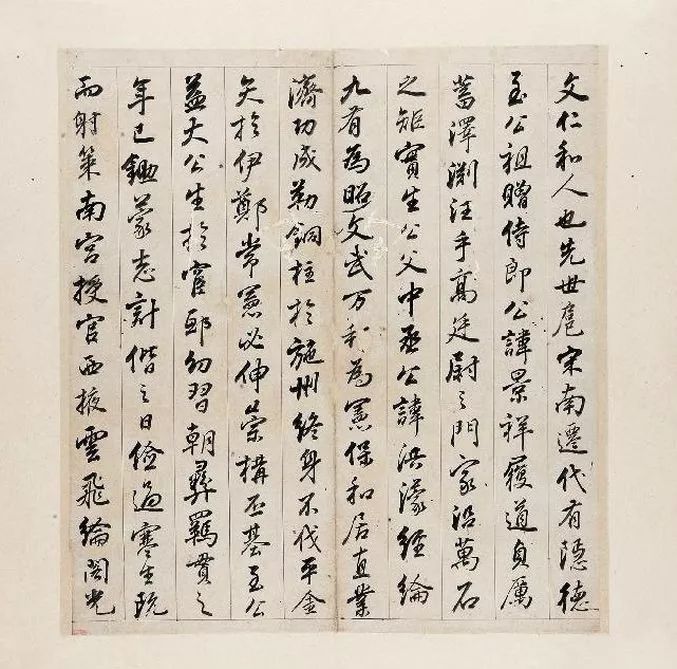 文仁和人也先世扈宋南遷代有隱德
至公祖贈侍郎公諱景祥履道貞厲
蓄澤渊汪乎高廷尉之門家沿萬石
之矩實生公父中丞公諱洪濛經綸
九有為昭文武万和為憲保和居直業
濟功成勒銅柱於施州終身不伐平金
矢於伊鄭常憲必伸崇構丕基至公
益大公生於宦邸幼習朝彝羈貫之
年已鋤蒙志計偕之日儉過寒生玩
而射策南宮授官西掖雲飛綸閣光